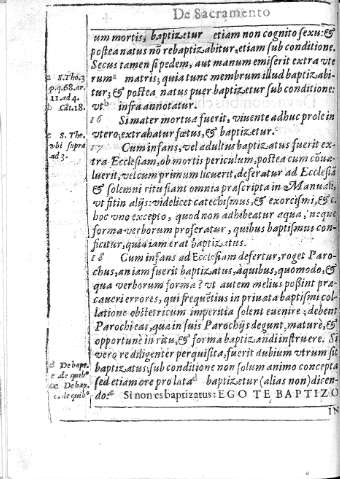 De Sacramento
um mortis, baptizetur etiam non cognito sexu: &
postea natus nõ rebaptizabitur, etiam sub conditione.
Secus tamen si pedem, aut manum emiserit extra vte
rum matris; quia tunc membrum illud baptizabi-
tur; & postea natus puer baptizetur sub conditione:
vt infra annotatur.
16 Si mater mortua fuerit, viuente adhuc prole in
vtero, extrahatur fœtus, & baptizetur.
17 Cum infans, vel adultus baptizatus fuerit ex-
tra Ecclesiam, ob mortis periculum, postea cum côua-
luerit, vel cum primum licuerit, deferatur ad Ecclesiã
& solemni ritu fiant omnia præscripta in Manuali,
vt fit in alijs: videlicet catechismus, & exorcismi, & c.
hoc vno excepto, quod non adhibeatur aqua, neque
forma verborum proferatur, quibus baptismus con-
ficitur, quia iam erat baptizatus.
18 Cum infans ad Ecclesiam defertur, roget Paro-
chus, an iam fuerit baptizatus, a quibus, quomodo, &
qua verborum forma? vt autem melius possint præ-
caueri errores, qui frequẽtius in priuata baptismi col-
latione obstetricum imperitia solent euenire: debent
Parochi eas, quæ in suis Parochijs degunt, maturè, &
opportunè in ritu, & forma baptizandi instruere. Si
vero re diligenter perquisita, fuerit dubium vtrum sit
baptizatus; sub conditione non solum animo concepta
sed etiam ore prolata baptizetur (alias non) dicen-
do: Si non es baptizatus: EGO TE BAPTIZO
IN
S. Tho. 3
p. q. 68. ar.
11. ad 4.
Cat. 18.
S. Tho.
vbi supra
ad 3.
De bapt.
De bap.